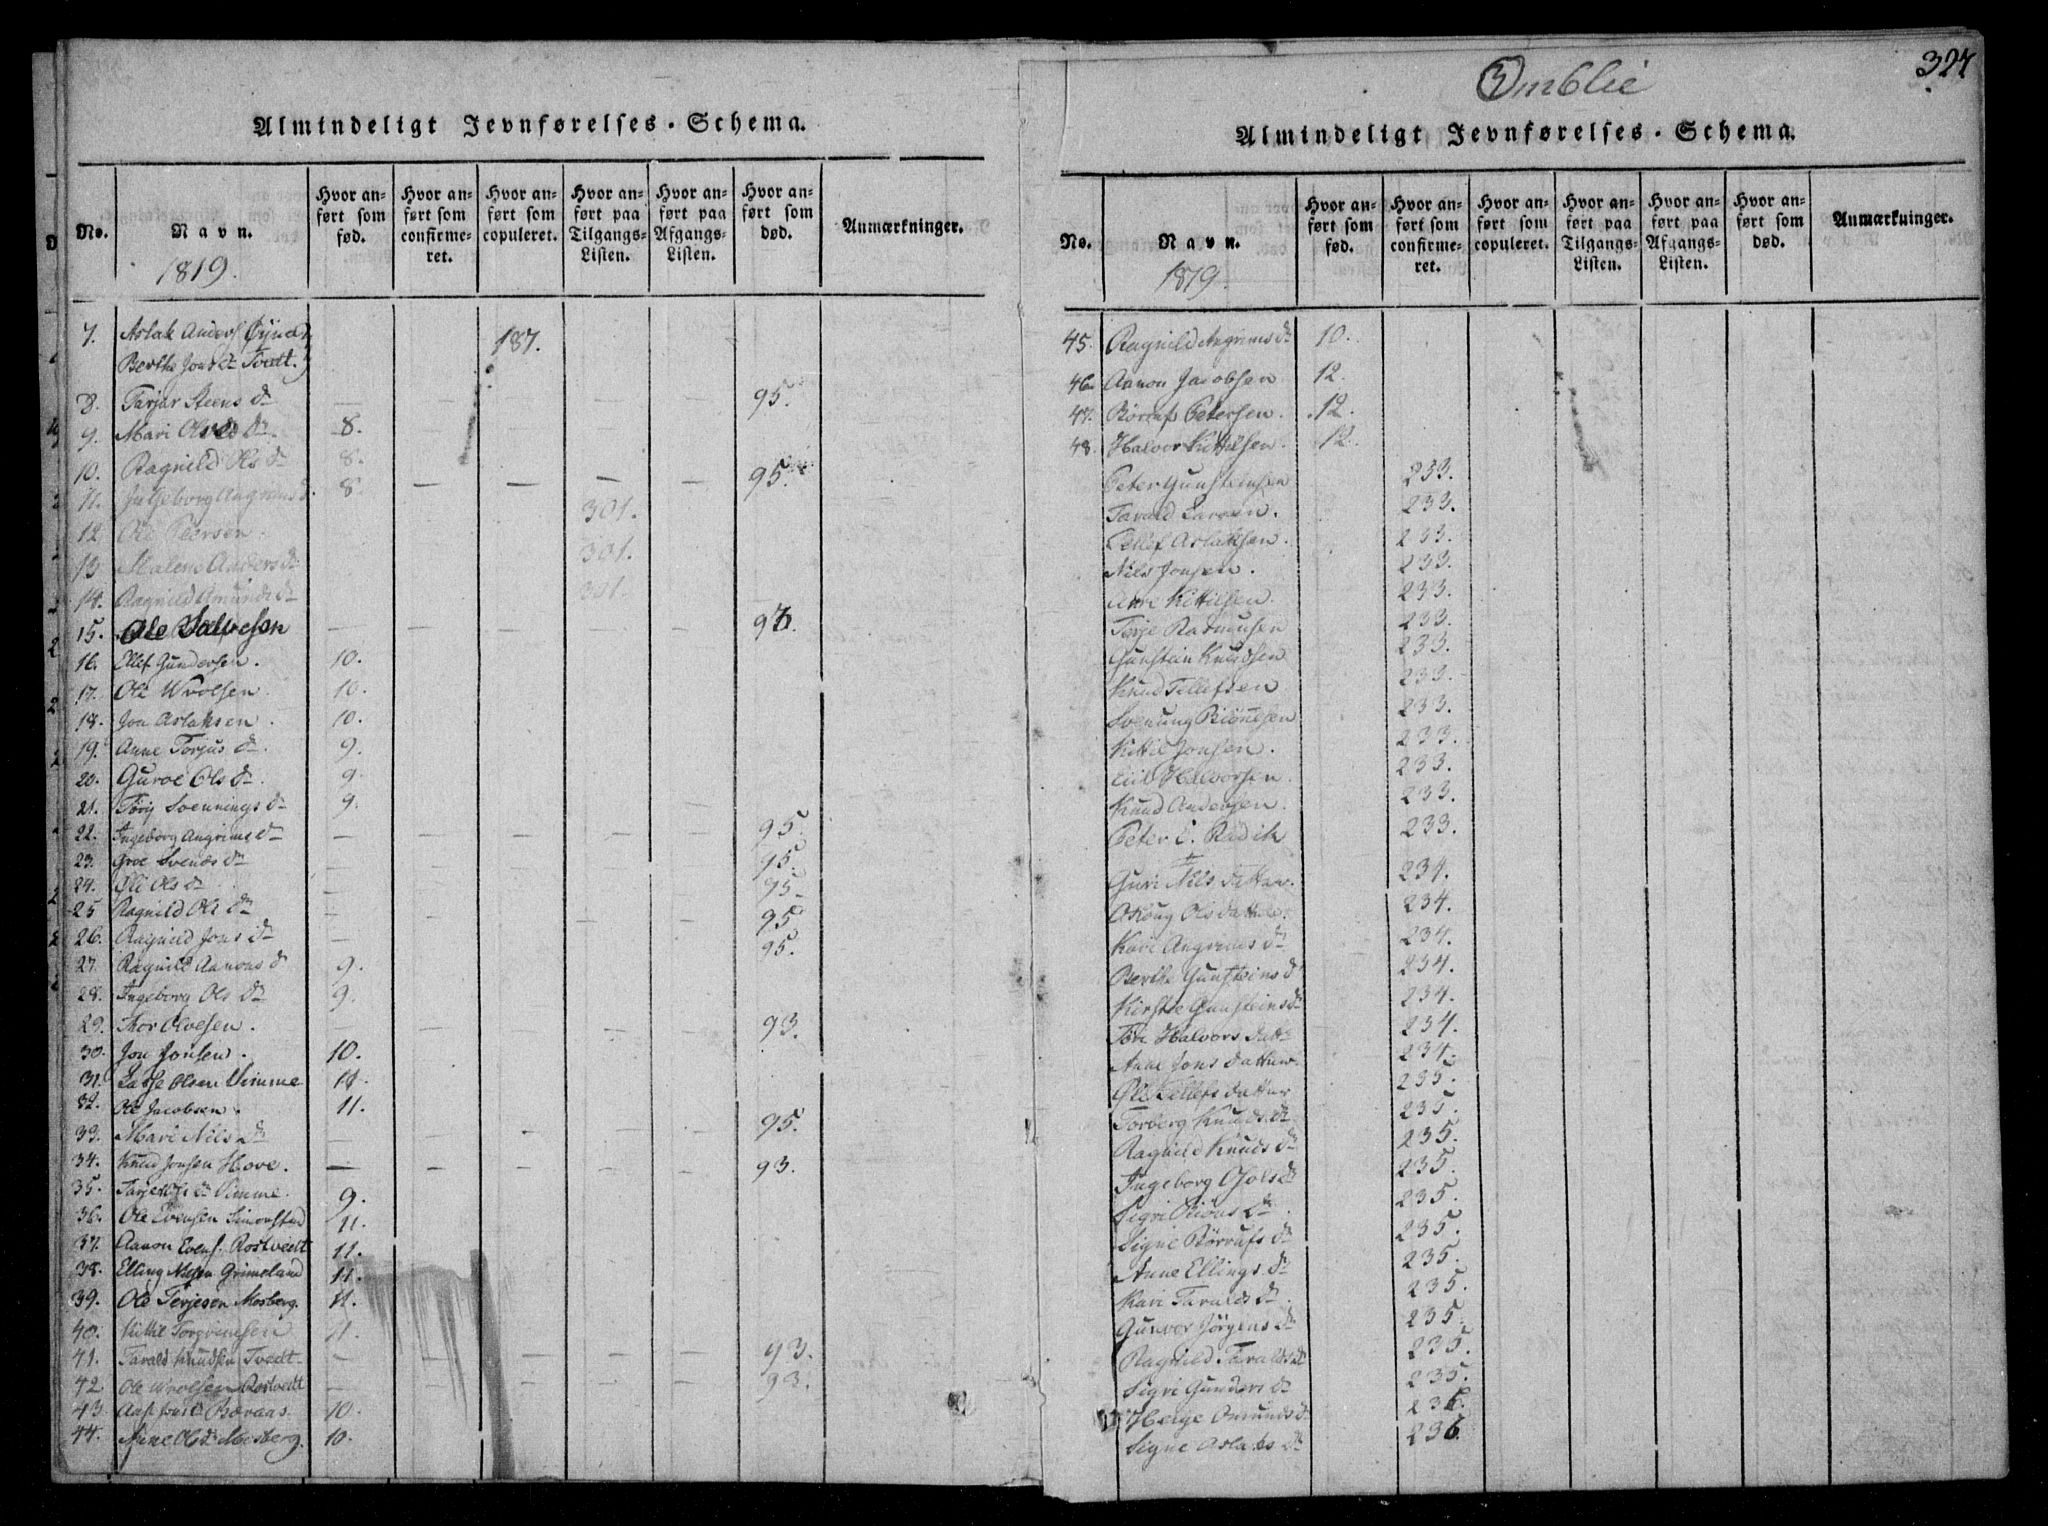 Almindeligt Jevnførelses-Schema.
No.
Navn.
1819.
Hvor anført som fød.
Hvor anført som confirmeret.
Hvor anført som copuleret.
Hvor anført paa Tilgangs-Listen.
Hvor anført paa Afgangs-Listen.
Hvor anført som død.
Anmærkninger.
7. Aslak Anders
Berthe Jons dr Tvedt. 187.
8. Tarjer Steens dr — — — — — 95.
9. Mari Olveds dr 8.
10. Ragnild Ols dr 8. — — — — 95.
11. Ingeborg Angrims d. 8. 301.
12 Ole Peersen.
13 Malene Anders dr 301.
14. Ragnild Amunds dr 301.
15. Ole Salvesen — — — — — 93.
16. Ellef Gundersen. 10.
17. Ole Wrolsen. 10.
18. Jon Aslaksen. 10.
19. Anne Torjus dr. 9.
20. Guroe Ols dr. 9.
21. Tørij Svennings dr 9.
22. Ingeborg Angrims dr — — — — — 95.
23. Groe Svends dr — 95.
24. Øli Ols dr — 95.
25 Ragnild Ols dr — 95
26. Ragnild Jons dr — 95.
27. Ragnild Aanons dr 9.
28. Ingeborg Ols dr 9.
29. Thor Olvesen. — — — — — 93.
30. Jon Jonsen. 10.
31. Lasse Olsen Vimme 11.
32. Ole Jacobsen. 11.
33. Mari Nils dr — — — — — 95.
34. Knud Jonsen Hove. — — — — — 93.
35. Tarje Ols dr Vimme. 9.
36. Ole Evensen Simonstad 11.
37. Aanon Evens. Rostvedt 11.
38. Elling Nilsen Grimeland 11.
39. Ole Terjesen Mosberg. 11.
40. Kittil Torgrimsen 11.
41. Tarald Knudsen Tvedt — — — — — 93.
42 Ole Wrolsen Rostvedt — — — — — 93.
43 Jons dr Børaas. 10.
44. Anne Ols dr Mosberg. 10.
Omblie
327
Almindeligt Jevnførelses-Schema.
No.
Navn.
1819.
Hvor anført som fød.
Hvor anført som confirmeret.
Hvor anført som copuleret.
Hvor anført paa Tilgangs-Listen.
Hvor anført paa Afgangs-Listen.
Hvor anført som død.
Anmærkninger.
45. Ragnild Angrims dr 10.
46. Aanon Jacobsen 12.
47. Børruf Petersen. 12.
48. Halvor Kittelsen. 12.
Peter Gunsteinsen 233.
Tarald Larsen. 233.
Tellef Aslaksen. 233.
Nils Jonsen. 233.
Kittilsen. 233.
Terje Rasmusen 233.
Gunstein Knudsen 233.
Knud Tellefsen 233.
Svenung Biönnsen 233.
Kittil Jonsen. 233.
Halvorsen. 233.
Knud Andersen. 233.
Peter C. 233.
Guri Nils datter. 234.
Olsdatter. 234.
Kari Angrims dr 234.
Berthe Gunsteins dr 234.
Kirsti Gunsteins dr 234.
Töre Halvors datr 234.
Anne Jons datter. 234.
Øli Tellefs datter 235.
Torberg Knuds dr 235.
Ragnild Knuds dr 235.
Ingeborg Osols dr 235.
Sigri Biöns dr. 235.
Signe Börrufs dr 235.
Anne Ellings dr 235.
Kari Taralds dr. 235.
Gunvor Jörgens dr 235.
Ragnild Taralds dr 235.
Sigri Gunders dr 235.
Helge Omunds dr 236.
Signe Aslaks dr 236.